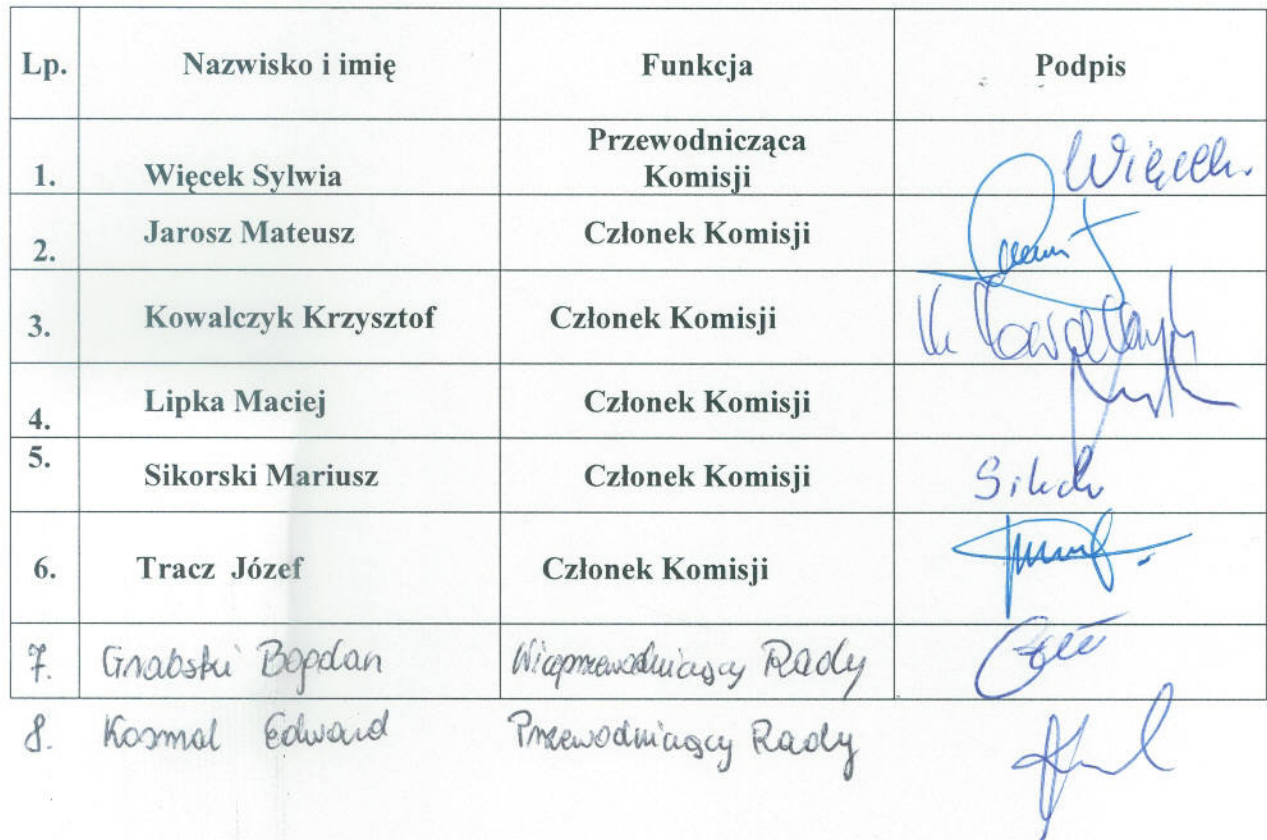 Lp. Nazwisko i imię Funkcja Podpis
1. Więcek Sylwia Przewodnicząca Komisji Więcek
2. Jarosz Mateusz Członek Komisji
3. Kowalczyk Krzysztof Członek Komisji K Kowalczyk
4. Lipka Maciej Członek Komisji
5. Sikorski Mariusz Członek Komisji
6. Tracz Józef Członek Komisji
7. Grabski Bogdan Wiceprzewodniczący Rady
8. Kosmal Edward Przewodniczący Rady